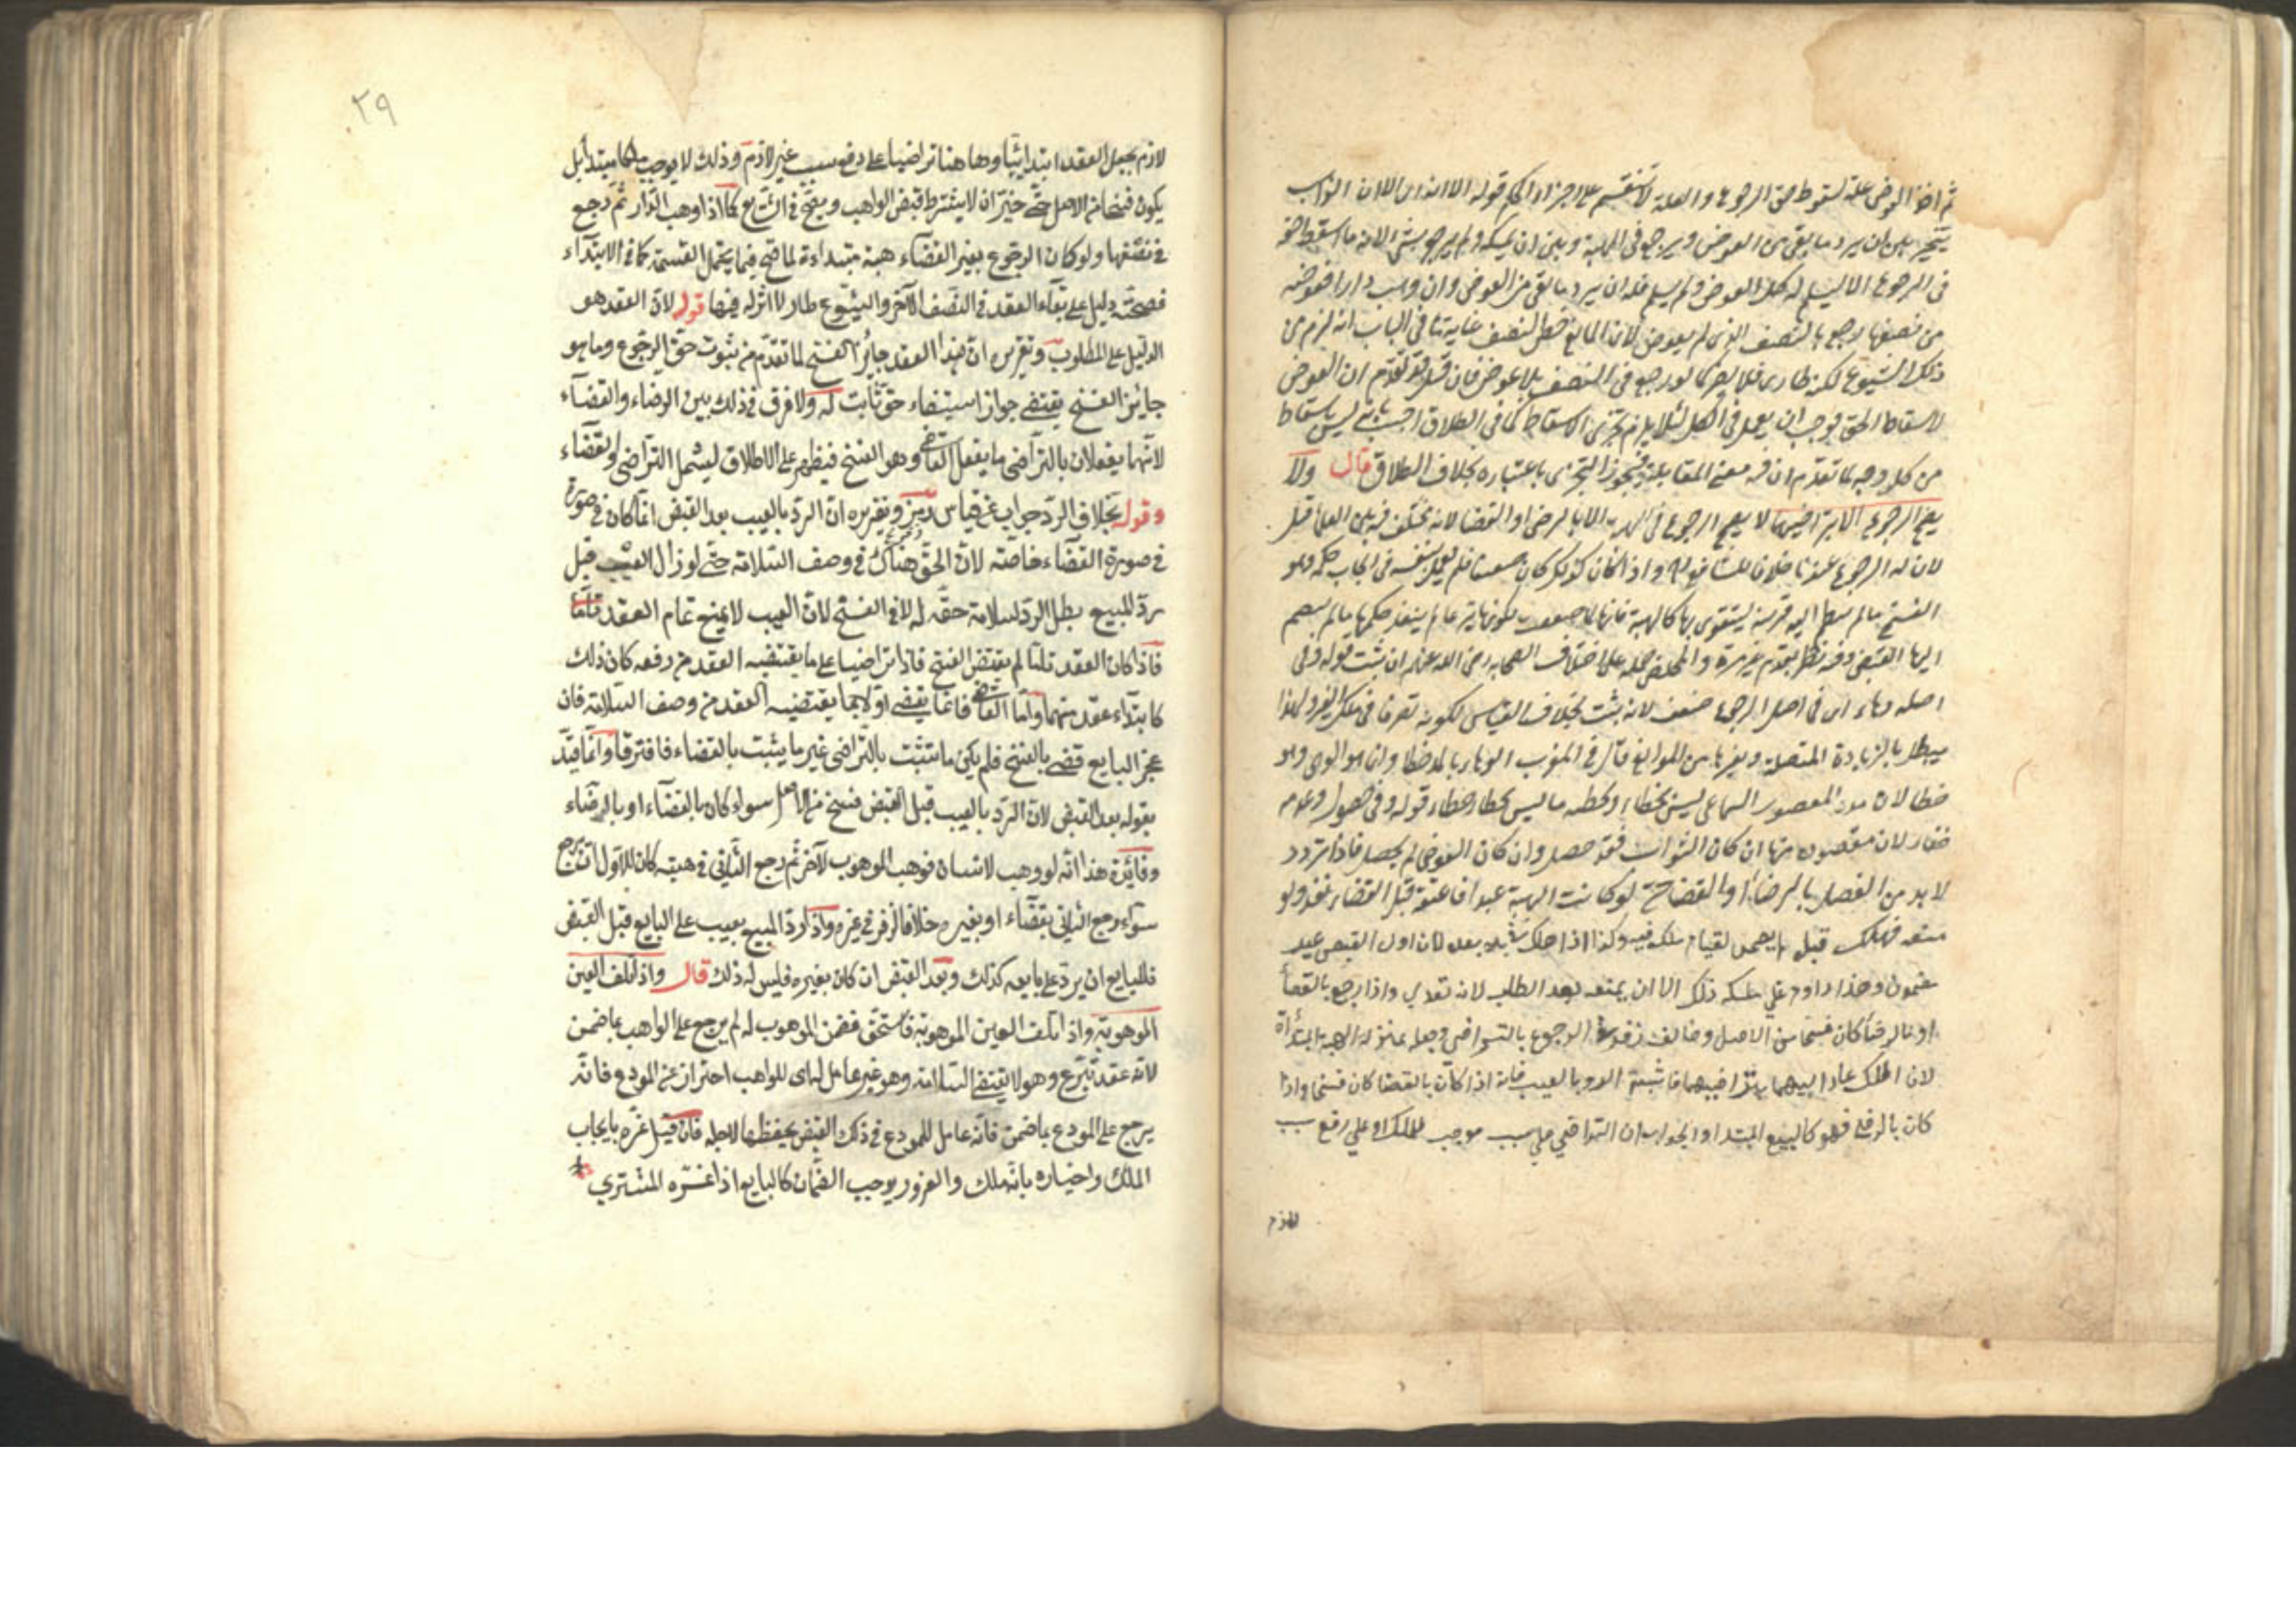 ثم اخذ العوض علة لسقوط حق الرجوع والعلة لا تنقسم على اجزاء الحكم قوله الا انه استدراك لان الواهب
يتخير بين ان يرد ما بقى من العوض ويرجع في الهبة وبين ان يمسكه ولم يرجع بشئ لانه ما اسقط حقه
في الرجوع الا ليسلم له كل العوض ولم يسلم فله ان يرد ما بقى من العوض وان وهب دارا فعوضه
من نصفها رجع بالنصف الذي لم يعوض لان المانع خص النصف غاية ما في الباب انه لزم من
ذلك الشيوع لكنه طارئ فلا يضر كما لو رجع في النصف بلا عوض فان قيل قد تقدم ان العوض
لاسقاط الحق فوجب ان يعمل في الكل لئلا يلزم تجزى الاسقاط كما في الطلاق اجيب بانه ليس باسقاط
من كل وجه لما تقدم ان فيه معنى المقابلة فيجوز التجزى باعتباره بخلاف الطلاق قال ولا
يصح الرجوع الا بتراضيهما لا يصح الرجوع في الهبة الا بالرضى او القضا لانه مختلف فيه بين العلما قيل
لان له الرجوع عندنا خلافا للشافعي واذا كان كذلك كان ضعيفا فلم يعمل بنفسه في ايجاب حكمه وهو
الفسخ ما لم ينضم اليه قرينة ليتقوى بها كالهبة فانها لما ضعفت لكونها تبرعا لم ينفذ حكمها ما لم ينضم
اليها القبض وفيه نظر
اصله وهاء اى في اصل الرجوع ضعف لانه يثبت بخلاف القياس لكونه تصرفا في ملك الغير ولهذا
يبطل بالزيادة المتصلة وغيرها من الموانع قال في المغرب الوهاء بالمد خطا وانما هو الوهى وهو
خطا لان مد المقصور السماعى ليس بخطا وتخطئة ما ليس بخطا خطاء قوله وفي حصول وعدمه
خفاء لان مقصوده منها ان كان الثواب فقد حصل وان كان العوض لم يحصل فاذا تردد
لا بد من الفصل بالرضا او القضا حتى لو كانت الهبة عبدا فاعتقه قبل القضاء نفذ ولو
منعه فهلك قبل لم يضمن لقيام ملكه فيه وكذا اذا هلك في يده بعد لان اول القبض غير
مضمون وهذا دوام عليه ذلك الا ان يمنعه بعد الطلب لانه تعدي واذا رجع بالقضأ
او بالرضأ كان فسخا من الاصل وخالف زفر في الرجوع بالتراضي وجعله بمنزلة الهبة المبتدأة
لان الملك عاد اليهما بتراضيهما فاشبه الرد بالعيب فانه اذا كان بالقضا كان فسخا واذا
كان بالرضى فهو كالبيع المبتدا والجواب ان التراضي على سبب موجب للملك او على رفع سبب
لازم
٢٩
لازم يجعل العقد ابتدائيا وها هنا تراضيا على دفع سبب غير لازم وذلك لا يوجب ملكا مبتدأ بل
يكون فسخا من الاصل حتى لا يشترط قبض الواهب ويصح في الشائع كما اذا وهب الدار ثم رجع
في نصفها ولو كان الرجوع بغير القضآء هبة مبتداءة لما صح فيما يحتمل القسمة كما في الابتدآء
فصحته دليل على بقآء العقد في النصف الآخر والشيوع طار لا اثر له فيها قوله لان العقد هو
الدليل على المطلوب وتقريره ان هذا العقد جايز الفسخ لما تقدم من ثبوت حق الرجوع وما هو
جايز الفسخ يقتضى جواز استيفاء حق ثابت له ولا فرق في ذلك بين الرضاء والقضآء
لانهما يفعلان بالتراضى ما يفعل القاضى وهو الفسخ فيظهر على الاطلاق ليشمل التراضى والقضآء
وقوله بخلاف الرد جواب عن قياس زفر وتقريره ان الرد بالعيب بعد القبض انما كان في صورة
في صورة القضآء خاصة لان الحق هناك في وصف السلامة حتى لو زال العيب قبل
رد المبيع بطل الرد لسلامة حقه له لا في الفسخ لان العيب لا يمنع تمام العقد
فاذا كان العقد تاما لم يقتض الفسخ فاذا تراضيا على ما يقتضيه العقد من رفعه كان ذلك
كابتدآء عقد منهما واما القاضى فانما يقضى اولا بما يقتضيه العقد من وصف السلامة فان
عجز البايع قضى بالفسخ فلم يكن ما تثبت بالتراضى غير ما يثبت بالقضاء فافترقا وانما قيد
بقوله بعد القبض لان الرد بالعيب قبل القبض فسخ من الاصل سواء كان بالقضآء او بالرضآء
وفائدة هذا انه لو وهب لانسان فوهب الموهوب لآخر ثم رجع الثاني في هبته كان للاول ان يرجع
سوآء رجع الثاني بقضآء او بغيره خلافا لزفر في غيره واذا رد المبيع بعيب على البايع قبل القبض
فللبايع ان يرد على بايعه كذلك وبعد القبض ان كان بغيره فليس له ذلك قال واذا تلف العين
الموهوبة واذا تلفت العين الموهوبة فاستحق فضمن الموهوب له لم يرجع على الواهب بما ضمن
لانه عقد تبرع وهو لا يقتضى السلامة وهو غير عامل له اى للواهب احتراز عن المودع فانه
يرجع على المودع بما ضمن فانه عامل للمودع في ذلك القبض بحفظها لاجله فان قيل غره بايجاب
الملك واخباره بانه ملك والغرور يوجب الضمان كالبايع اذا غره المشتري